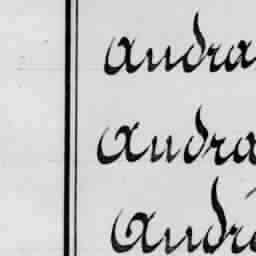 Andra
Andra
Andr